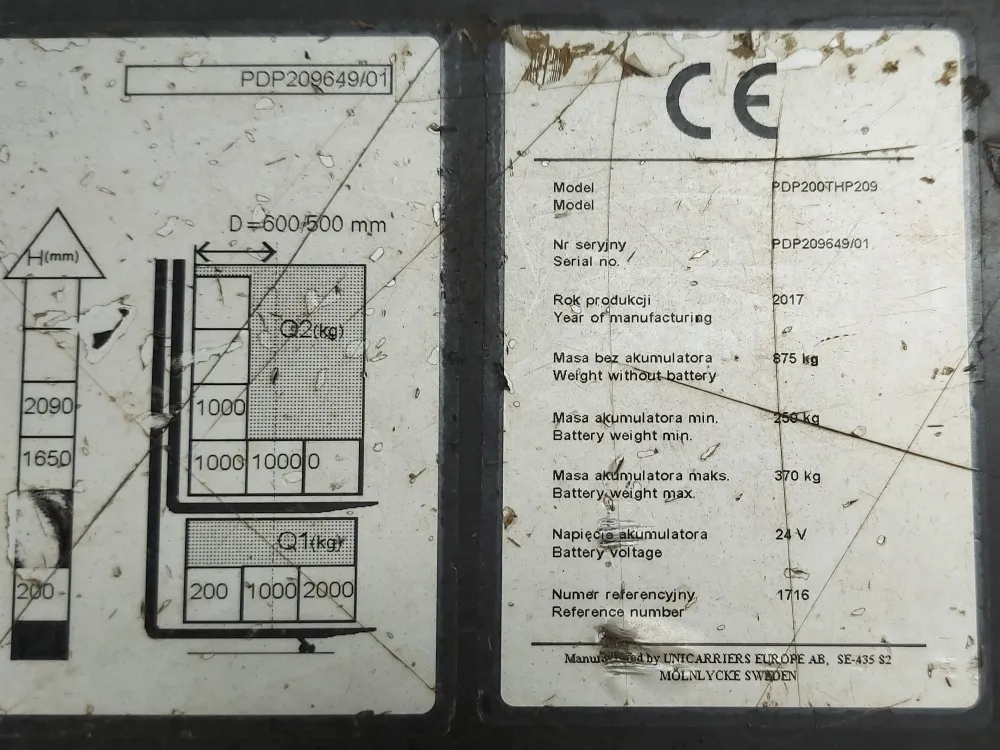 PDP209649/01
D=600/500 mm
H(mm)
Q2(kg)
2090
1000
1650
1000 1000 0
Q1(kg)
200
200 1000 2000
CE
Model PDP200THP209
Model
Nr seryjny PDP209649/01
Serial no.
Rok produkcji 2017
Year of manufacturing
Masa bez akumulatora 875 kg
Weight without battery
Masa akumulatora min. 250 kg
Battery weight min.
Masa akumulatora maks. 370 kg
Battery weight max.
Napięcie akumulatora 24 V
Battery voltage
Numer referencyjny 1716
Reference number
Manufactured by UNICARRIERS EUROPE AB, SE-435 82
MÖLNLYCKE SWEDEN